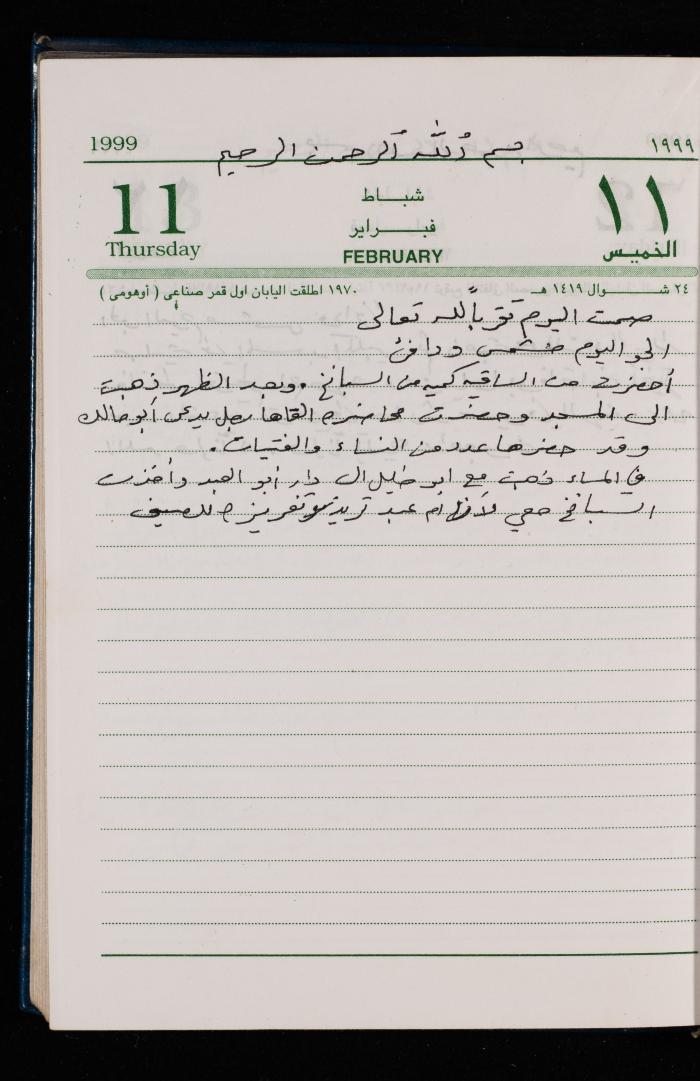 1999 بسم الله الرحمن الرحيم ١٩٩٩
11 شباط ١١
Thursday فبراير الخميس
FEBRUARY
٢٤ شوال ١٤١٩ هـ ١٩٧٠ اطلقت اليابان اول قمر صناعي ( أوهومي )
صمت اليوم تقرباً لله تعالى
الجو اليوم مشمس ودافئ
أحضرت من الساقية كمية من السبانخ . وبعد الظهر ذهبت
الى المسجد وحضرت محاضرة القاها رجل يدعى أبو مالك
وقد حضرها عدد من النساء والفتيات .
في المساء ذهبت مع ابو خليل ال دار أبو العبد وأخذت
السبانخ معي لأن ام عبد تريد تفريزه للصيف